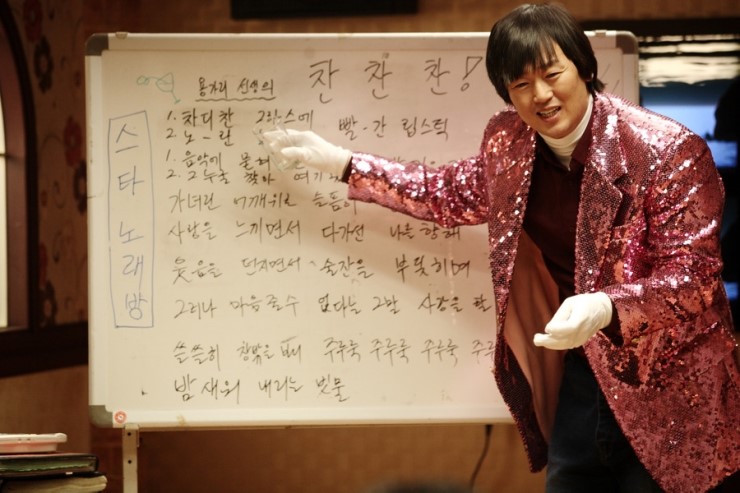 스타노래방
용가리 선생의 찬 찬 찬!
1. 차디찬 그라스에 빨-간 립스틱
2. 노-란
1. 음악에
2. 그 누굴 찾아 여기
가녀린 어깨위로 슬픔이
사랑을 느끼면서 다가선 나를 향해
웃음을 던지면서 술잔을 부딪히며
그러나 마음줄수 없다는 그말 사랑을 할
쓸쓸히 창밖을 보니 주루룩 주루룩 주루룩
밤새워 내리는 빗물